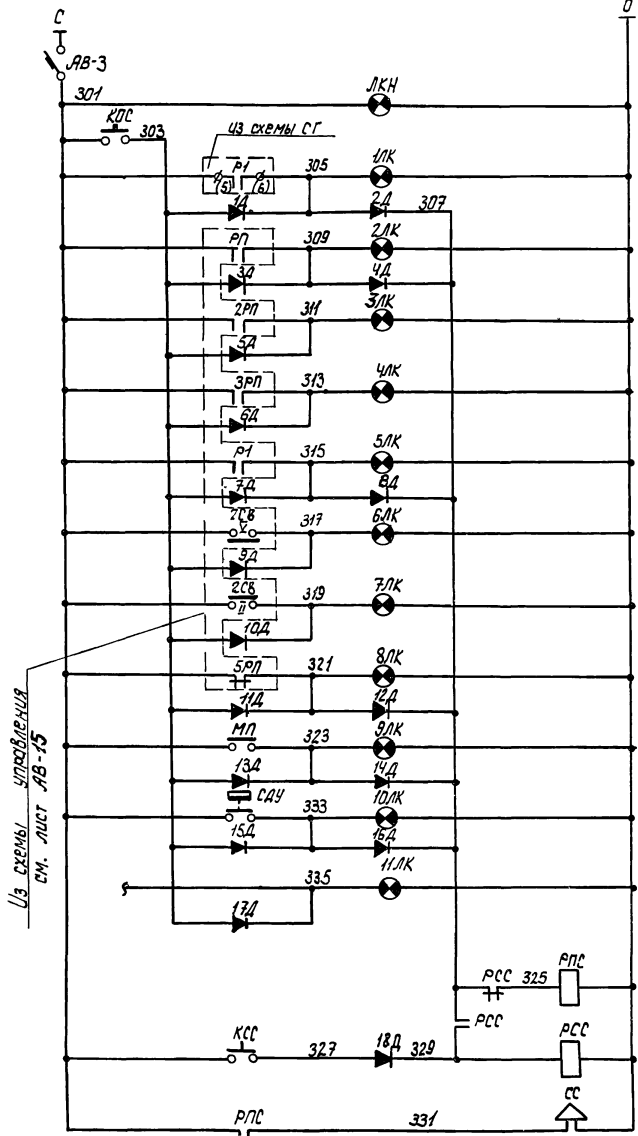 С
0
АВ-3
301
ЛКН
КПС
303
из схемы СГ
Р1
(5)
(6)
305
1ЛК
1Д
2Д
307
РП
309
2ЛК
3Д
4Д
2РП
311
3ЛК
5Д
3РП
313
4ЛК
6Д
Р1
315
5ЛК
7Д
8Д
2СВ
V
317
6ЛК
9Д
2СВ
II
319
7ЛК
10Д
5РП
321
8ЛК
11Д
12Д
МП
323
9ЛК
13Д
14Д
СДУ
333
10ЛК
15Д
16Д
335
11ЛК
17Д
Из схемы управления
см. лист АВ-15
РСС
325
РПС
РСС
КСС
327
18Д
329
РСС
РПС
331
СС